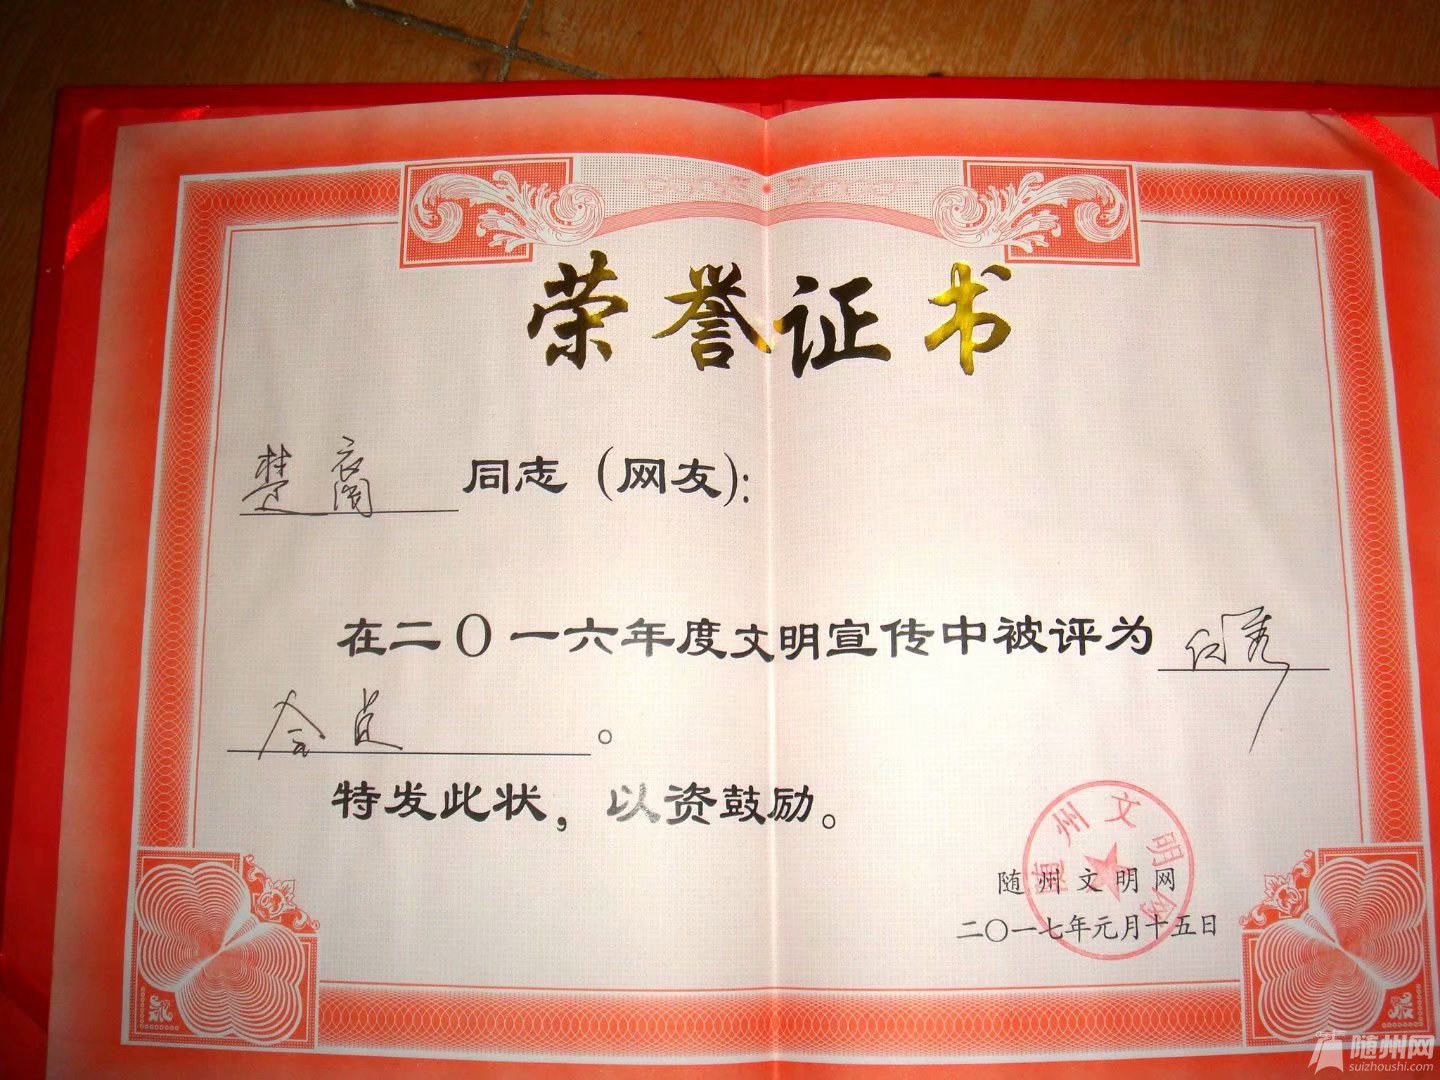 荣誉证书
楚 同志（网友）：
在二〇一六年度文明宣传中被评为优秀
会员。
特发此状，以资鼓励。
随州文明网
随州文明网
二〇一七年元月十五日
随州网
suizhoushi.com